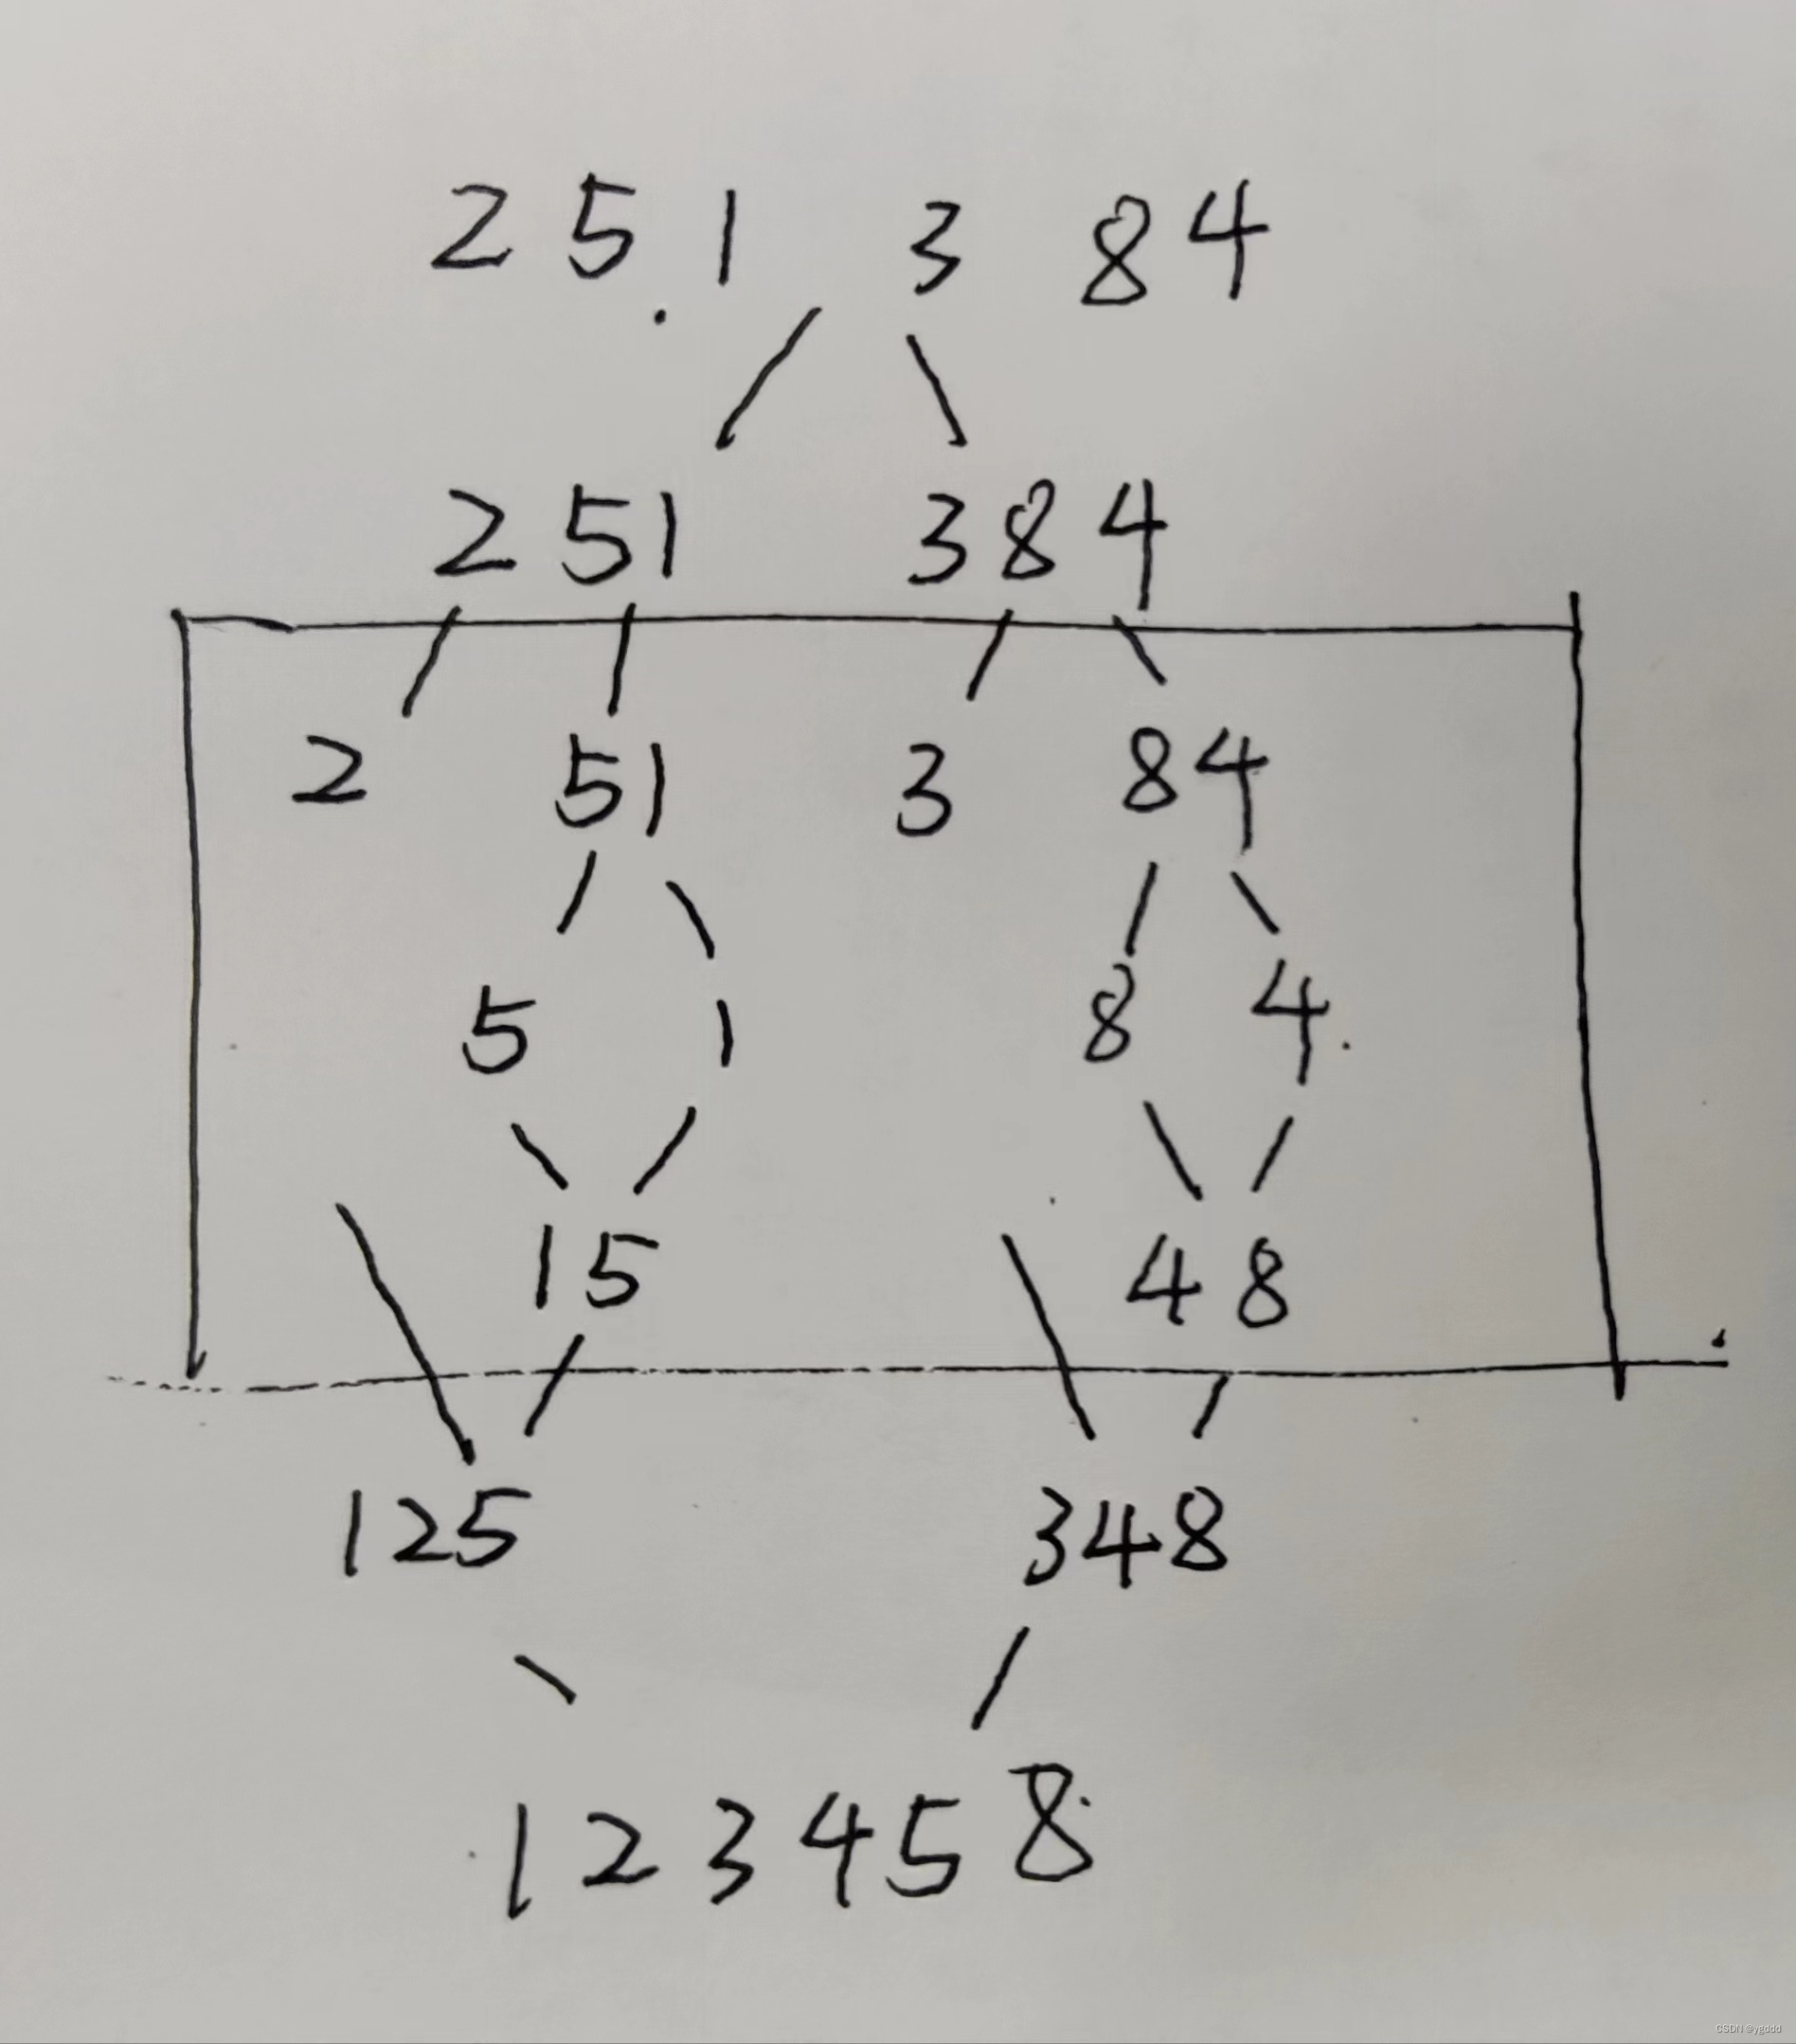 2 5 1 3 8 4
2 5 1 3 8 4
2 5 1 3 8 4
5 1 8 4
1 5 4 8
1 2 5 3 4 8
1 2 3 4 5 8
CSDN @ygddd